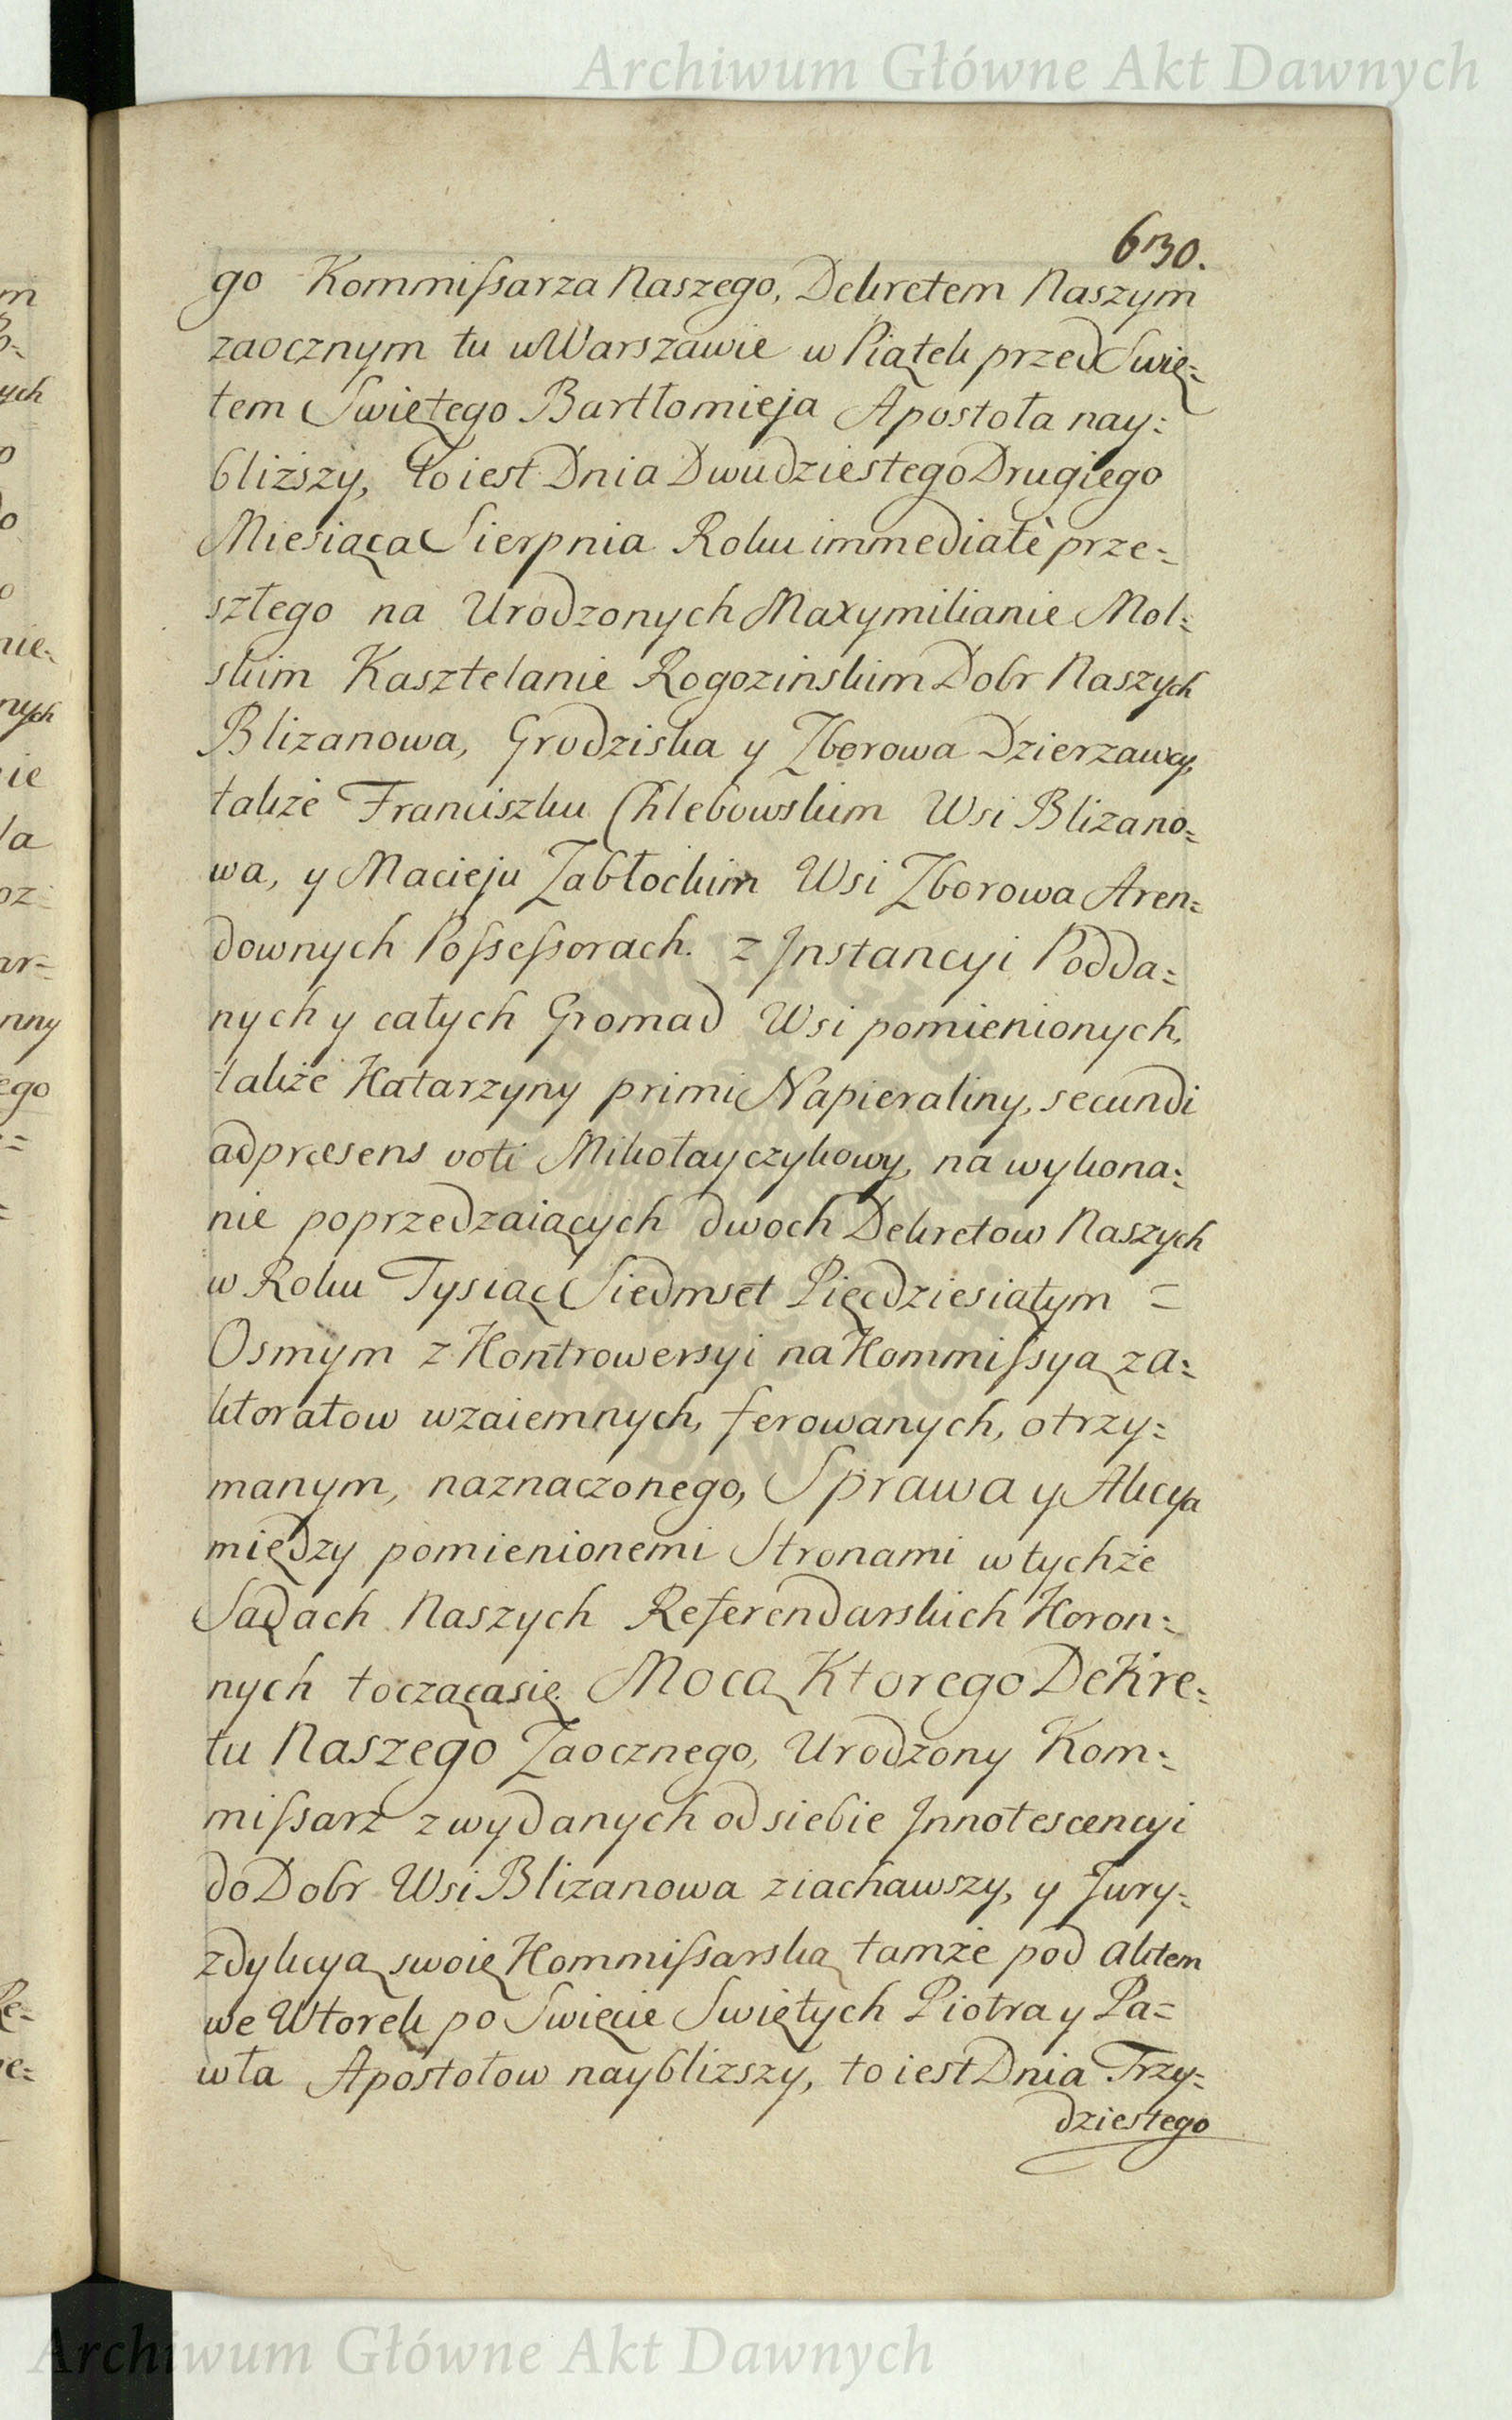 Archiwum Główne Akt Dawnych
630.
go Kommissarza Naszego, Dekretem Naszym
zaocznym tu w Warszawie w Piątek przed Swię=
tem Swiętego Bartłomieja Apostoła nay=
bliższy, to iest Dnia Dwudziestego Drugiego
Miesiąca Sierpnia Roku immediatè prze=
szłego na Urodzonych Maxymilianie Mol=
skim Kasztelanie Rogozinskim Dobr Naszych
Blizanowa, Grodziska y Zborowa Dzierzawcy,
także Franciszku Chlebowskim Wsi Blizano=
wa, y Macieju Zabłockim Wsi Zborowa Aren=
downych Possessorach. z Jnstancyi Podda=
nych y całych Gromad Wsi pomienionych,
także Katarzyny primi Napieraliny, secundi
ad præsens voti Mikołayczykowy, na wykona=
nie poprzedzaiących dwoch Dekretow Naszych
w Roku Tysiąc Siedmset Pięcdziesiątym =
Osmym z Kontrowersyi na Kommissyą z a=
ktoratow wzaiemnych, ferowanych, otrzy=
manym, naznaczonego, Sprawa y Akcya
między pomienionemi Stronami w tychże
Sądach Naszych Referendarskich Koron=
nych tocząca się. Mocą Ktorego Dekre=
tu Naszego Zaocznego, Urodzony Kom=
missarz z wydanych od siebie Jnnotescencyi
do Dobr Wsi Blizanowa ziachawszy, y Jury=
zdykcyą swoię Kommissarską tamże pod aktem
we Wtorek po Swięcie Swiętych Piotra y Pa=
wła Apostołow naybliższy, to iest Dnia Trzy=
dziestego
Archiwum Główne Akt Dawnych